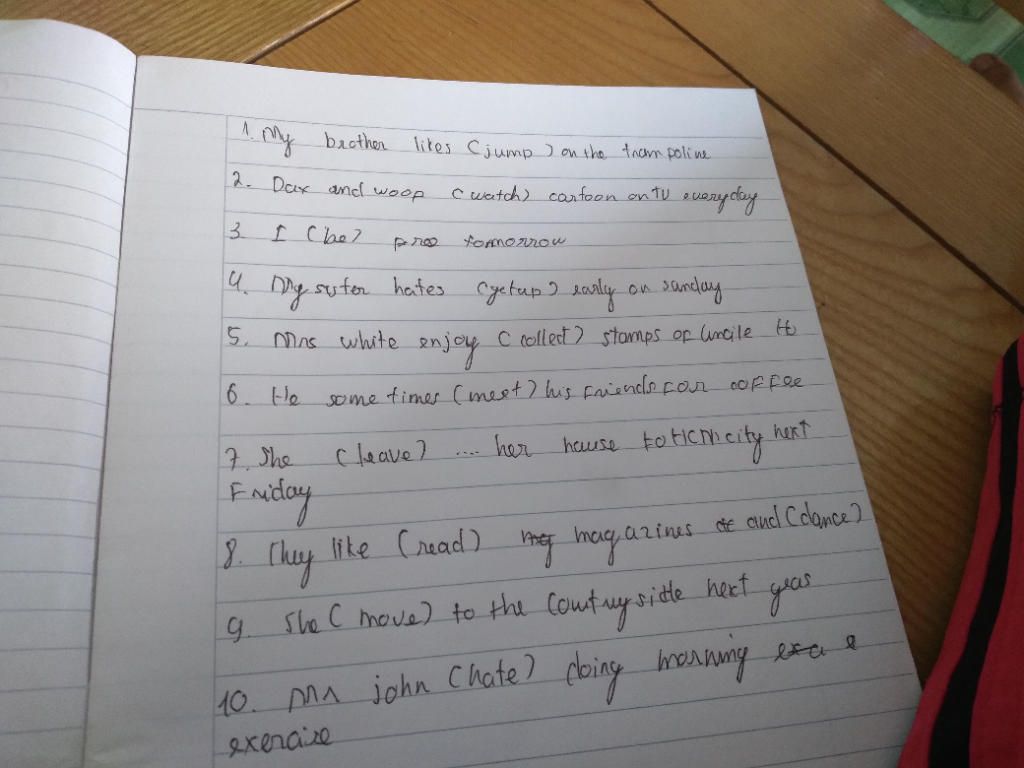 1. My brother likes (jump) on the trampoline
2. Dax and woop (watch) cartoon on TV everyday
3. I (be) free tomorrow
4. My sister hates (getup) early on sunday
5. Mrs white enjoy (collect) stamps of
6. He some times (meet) his friends for coffee
7. She (leave) .... her house to HCM city next
Friday
8. They like (read) magazines and (dance)
9. She (move) to the countryside next year
10. Mr john (hate) doing morning
exercise